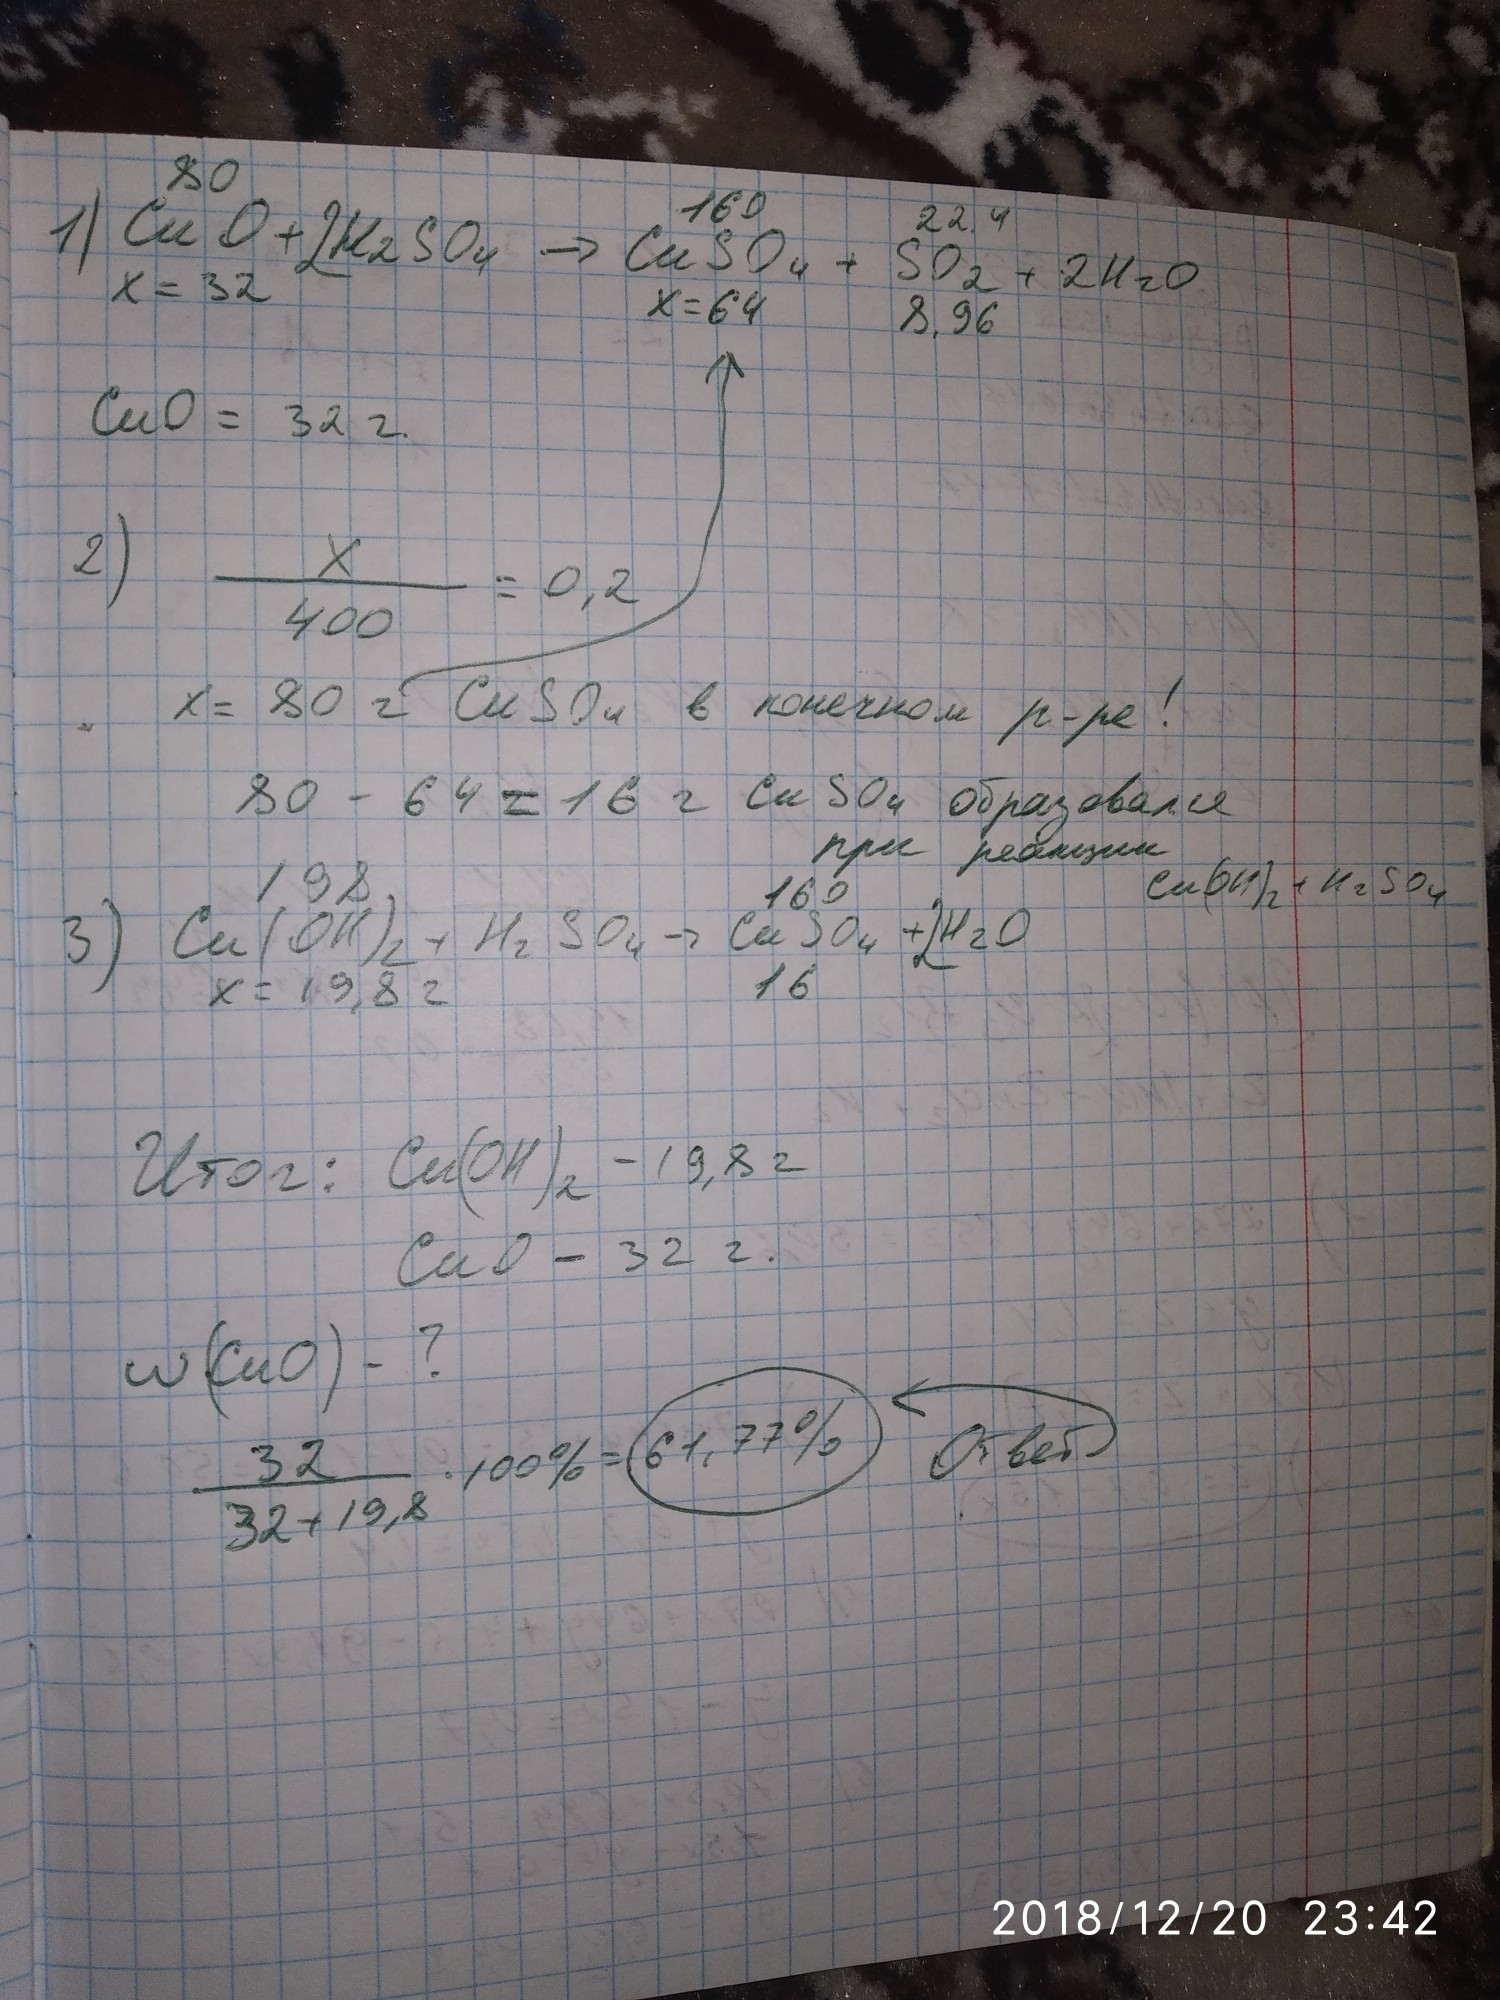 80
1) CuO + 2H2SO4 → CuSO4 + SO2 + 2H2O
160
22.4
x = 32
x = 64
8,96
CuO = 32 г.
2) x / 400 = 0,2
x = 80 г CuSO4 в конечном р-ре!
80 - 64 = 16 г CuSO4 образовался
при реакции
Cu(OH)2 + H2SO4
198
160
3) Cu(OH)2 + H2SO4 → CuSO4 + 2H2O
x = 19,8 г
16
Итог: Cu(OH)2 - 19,8 г
CuO - 32 г.
w(CuO) - ?
32 / 32 + 19,8 · 100% = 61,77% Ответ
2018/12/20 23:42